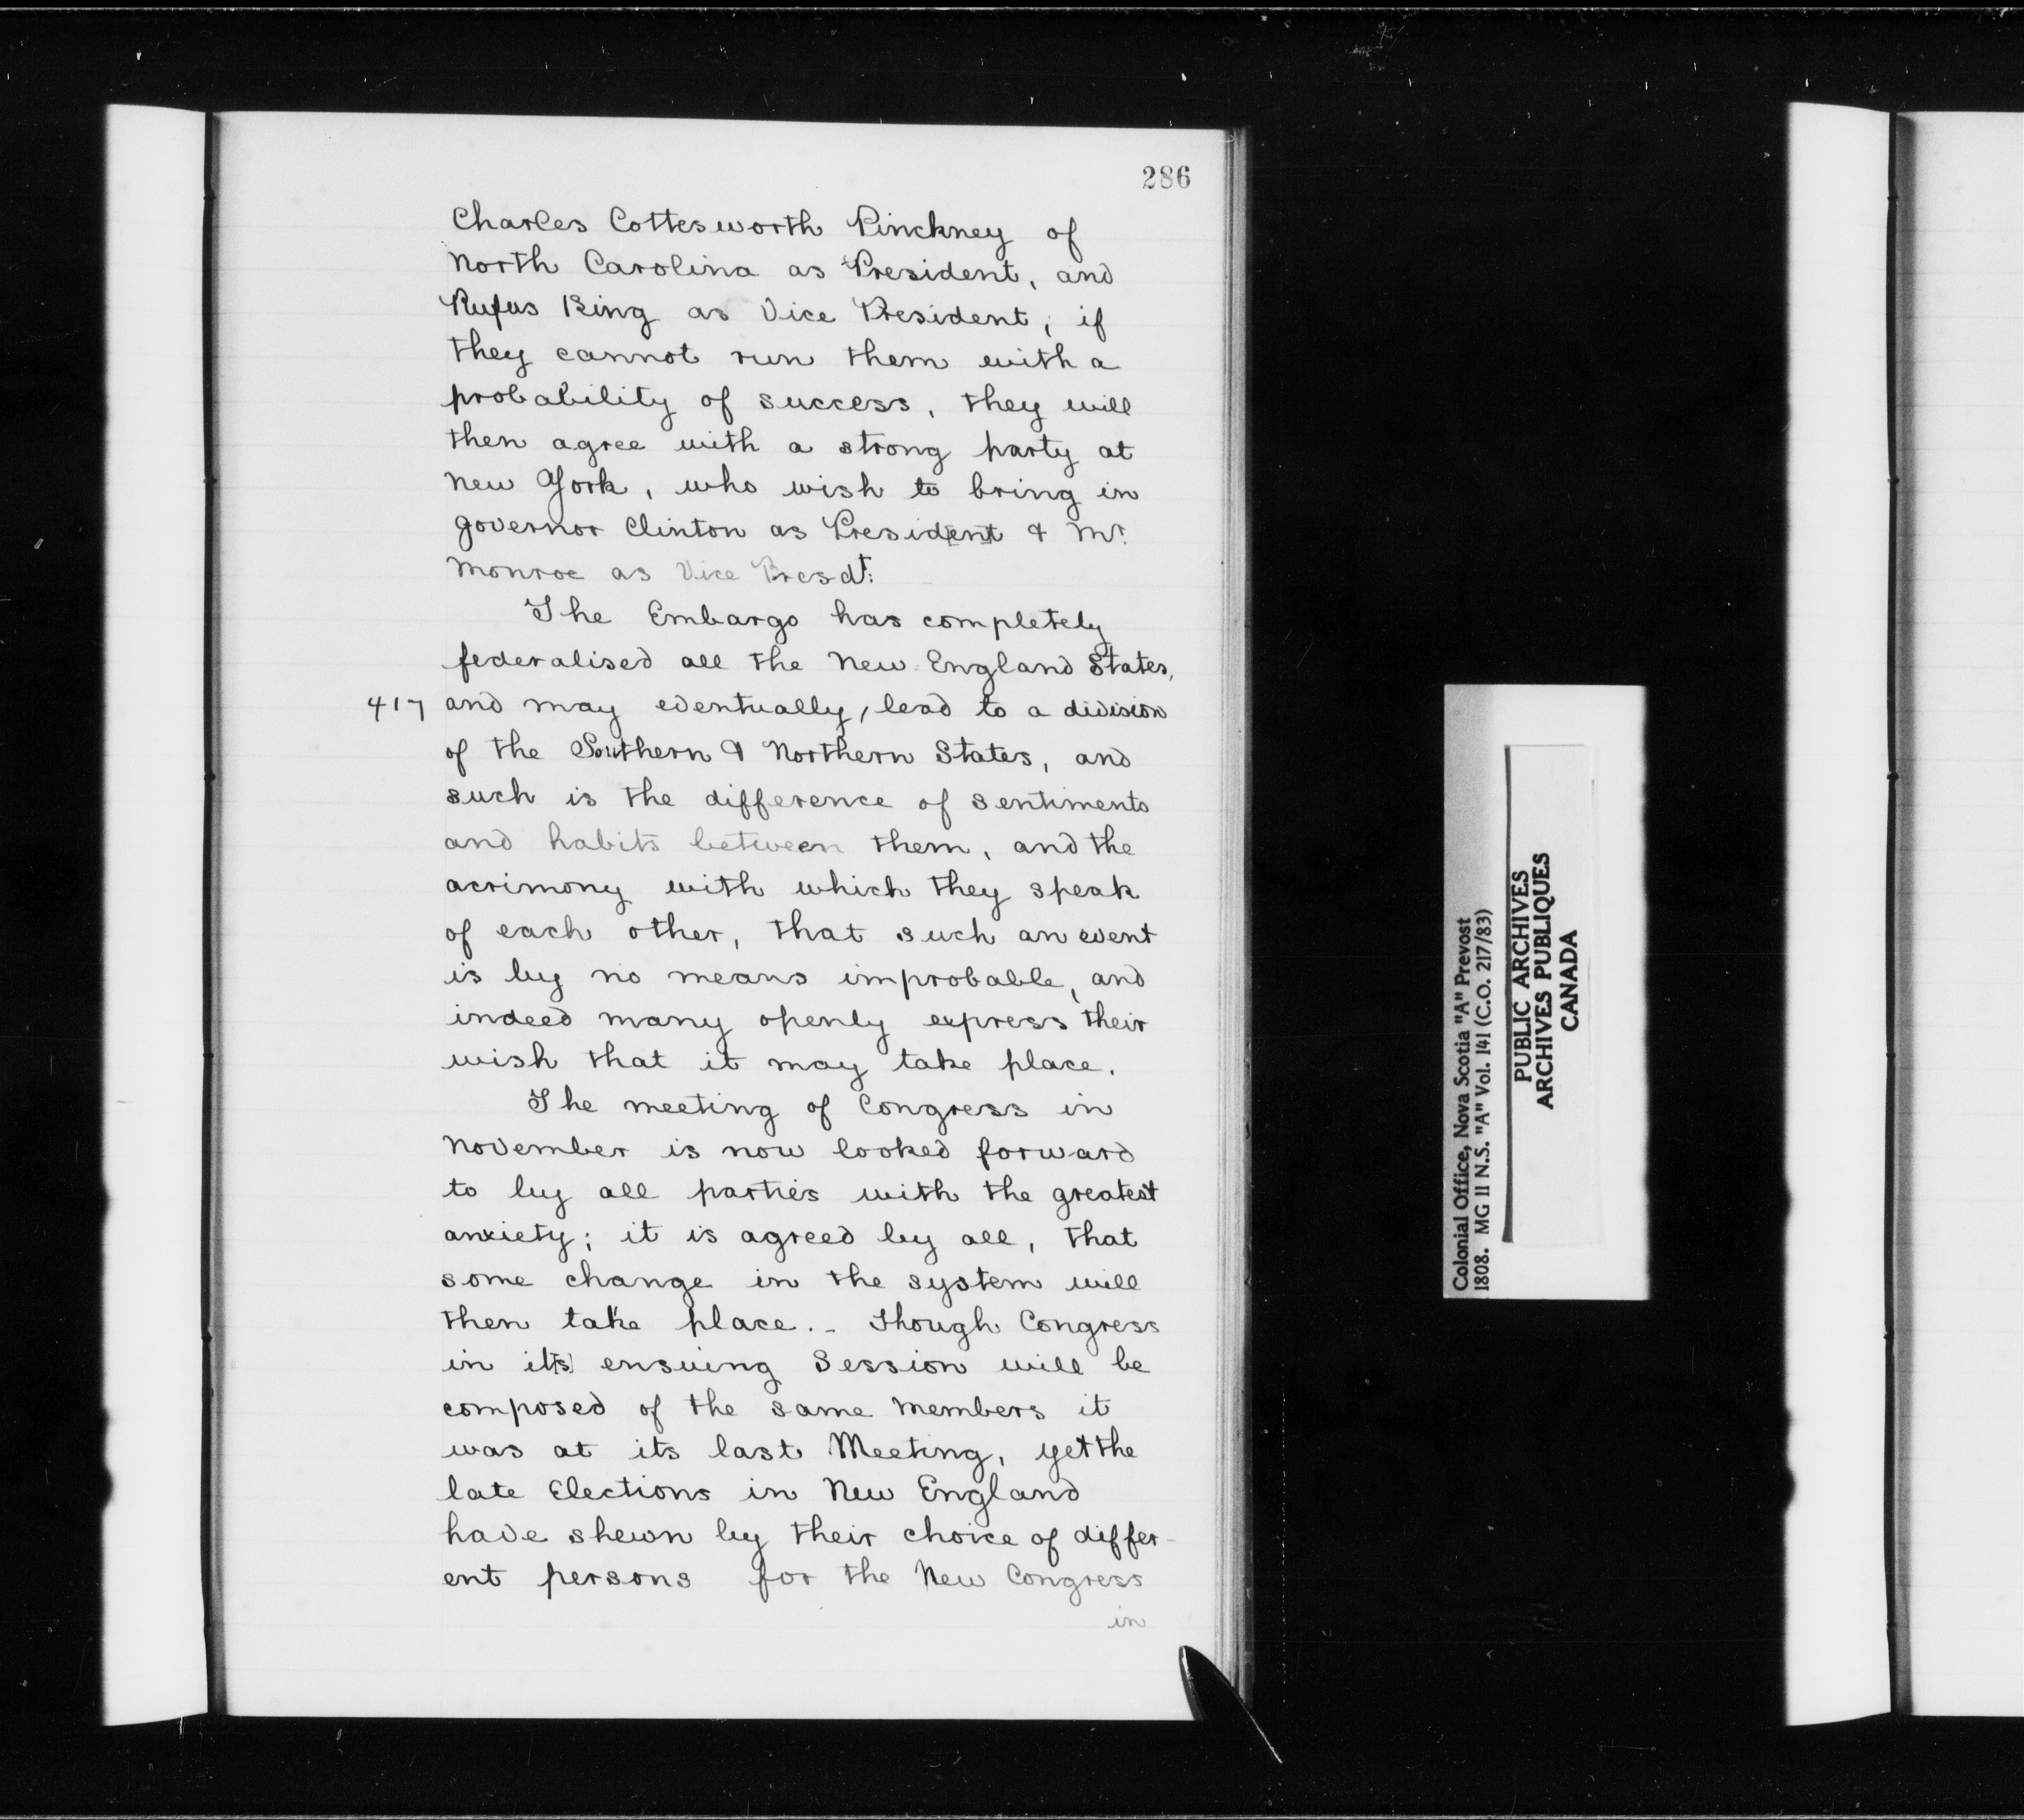 286
Charles Cottesworth Pinckney of
North Carolina as President, and
Rufus King as Vice President; if
they cannot run them with a
probability of success, they will
then agree with a strong party at
New York, who wish to bring in
Governor Clinton as President & Mr.
Monroe as Vice Presdt:
The Embargo has completely
federalised all the New England States,
417 and may eventually, lead to a division
of the Southern & Northern States, and
such is the difference of sentiments
and habits between them, and the
acrimony with which they speak
of each other, that such an event
is by no means improbable, and
indeed many openly express their
wish that it may take place.
The meeting of Congress in
November is now looked forward
to by all parties with the greatest
anxiety; it is agreed by all, that
some change in the system will
then take place. - Though Congress
in it[s] ensuing Session will be
composed of the same members it
was at its last Meeting, yet the
late Elections in New England
have shewn by their choice of differ-
ent persons for the New Congress
in
Colonial Office, Nova Scotia "A" Prevost
1808. MG 11 N.S. "A" Vol. 141 (C.O. 217/83)
PUBLIC ARCHIVES
ARCHIVES PUBLIQUES
CANADA